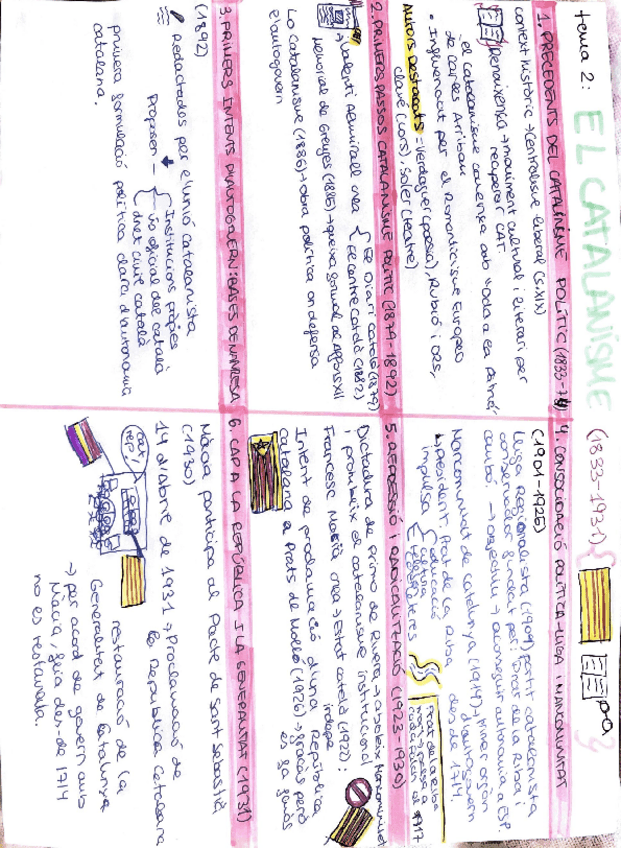 tema 2: EL CATALANISME (1833-1931)
1. PRECEDENTS DEL CATALANISME POLÍTIC (1833-74)
context històric → Centralisme liberal (s.XIX)
Renaixença → moviment cultural i literari per
recuperar CAT.
el catalanisme comença amb "Oda a la Pàtria"
de Carles Aribau
• Influenciat per el Romanticisme Europeo
Autors Destacats = Verdaguer (poesia), Rubió i Ors,
clavé (cors), Soler (teatre)
2. PRIMERS PASSOS CATALANISME POLÍTIC (1879-1892)
→ Valentí Almirall crea { El Diari català (1879)
El centre català (1882)
Memorial de Greuges (1885) → queixa formal al Alfons XII
Lo Catalanisme (1886) → obra política on defensa
l'autogovern
3. PRIMERS INTENTS D'AUTOGOVERN: BASES DE MANRESA
(1892)
Redactades per l'unió catalanista
Proposen - { Institucions pròpies
ús oficial del català
dret civil català
primera formulació política clara d'autonomia
catalana.
4. CONSOLIDACIÓ POLÍTICA - LLIGA I MANCOMUNITAT
(1901-1925)
Lliga Regionalista (1901) partit catalanista
conservador fundat per: Prat de la Riba i
Cambó. → objectiu → aconseguir autonomia a ESP.
Mancomunitat de Catalunya (1914), primer orgàn
d'autogovern
des de 1714.
president: Prat de la Riba
impulsa { cultura
educació
carreteres
Prat de la Riba
1917
5. REPRESSIÓ I RADICALITZACIÓ (1923-1930)
Dictadura de Primo de Rivera → aboleix Mancomunitat
i prohibeix el catalanisme institucional
Francesc Macià crea → Estat català (1922):
indepe
Intent de proclamació d'una República
Catalana a Prats de Molló (1926) → fracàs però
es fa famós
6. CAP A LA REPÚBLICA I LA GENERALITAT (1931)
Macià participa al Pacte de Sant Sebastià
(1930)
14 d'Abril de 1931 → Proclamació de
la República Catalana
cat. rep.
restauració de la
Generalitat de Catalunya
→ per acord de govern amb
Macià, feia des-de 1714
no es restaurada.